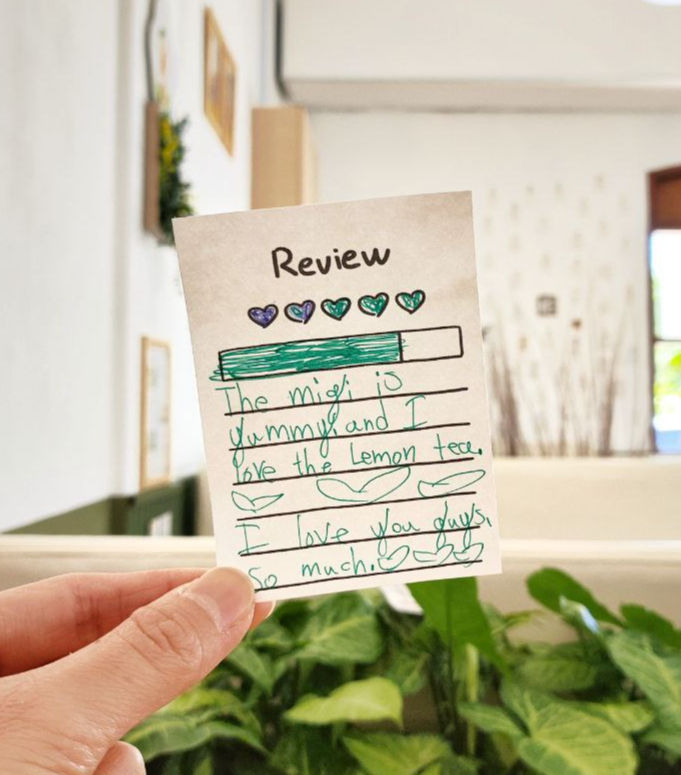 Review
The migi is
yummy, and I
love the Lemon tea.
I love you guys,
so much.